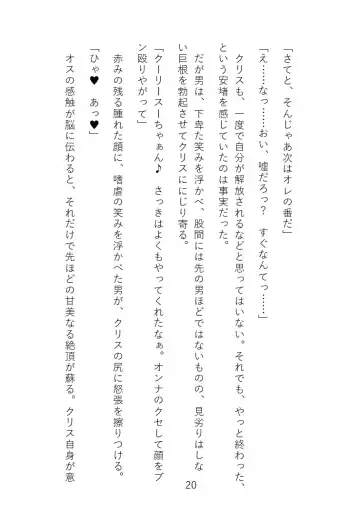 「さてと、そんじゃあ次はオレの番だ」
「え……なっ……おい、嘘だろっ？　すぐなんてっ……」
　クリスも、一度で自分が解放されるなどと思ってはいない。それでも、やっと終わった、
という安堵を感じていたのは事実だった。
　だが男は、下卑た笑みを浮かべ、股間には先の男ほどではないものの、見劣りはしな
い巨根を勃起させてクリスににじり寄る。
「クーリースーちゃぁん♪　さっきはよくもやってくれたなぁ。オンナのクセして顔をブ
ン殴りやがって」
　赤みの残る腫れた顔に、嗜虐の笑みを浮かべた男が、クリスの尻に怒張を擦りつける。
「ひゃ♥　あっ♥」
　オスの感触が脳に伝わると、それだけで先ほどの甘美なる絶頂が蘇る。クリス自身が意
20